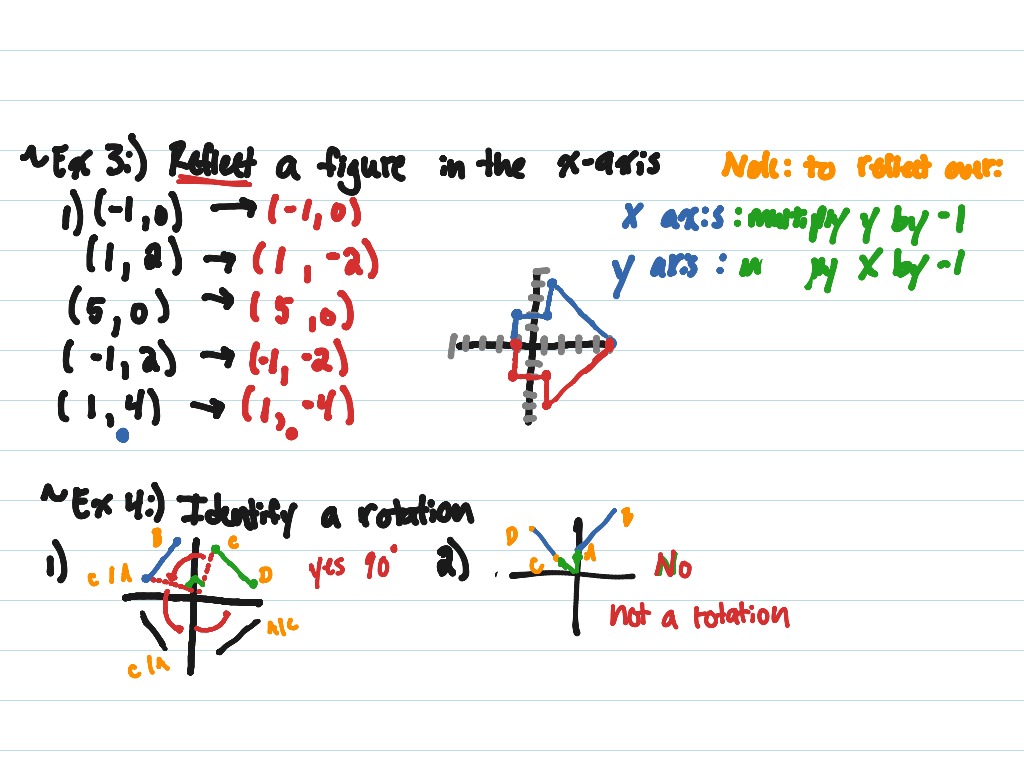 ~Ex 3:) Reflect a figure in the x-axis
Note: to reflect over:
1) (-1,0) → (-1,0)
x axis : multiply y by -1
(1, 2) → (1, -2)
y axis : " " x by -1
(5, 0) → (5, 0)
(-1, 2) → (-1, -2)
(1, 4) → (1, -4)
~Ex 4:) Identify a rotation
1)
B
C
C/A
D
yes 90°
A/C
C/A
2)
D
B
C
A
No
not a rotation